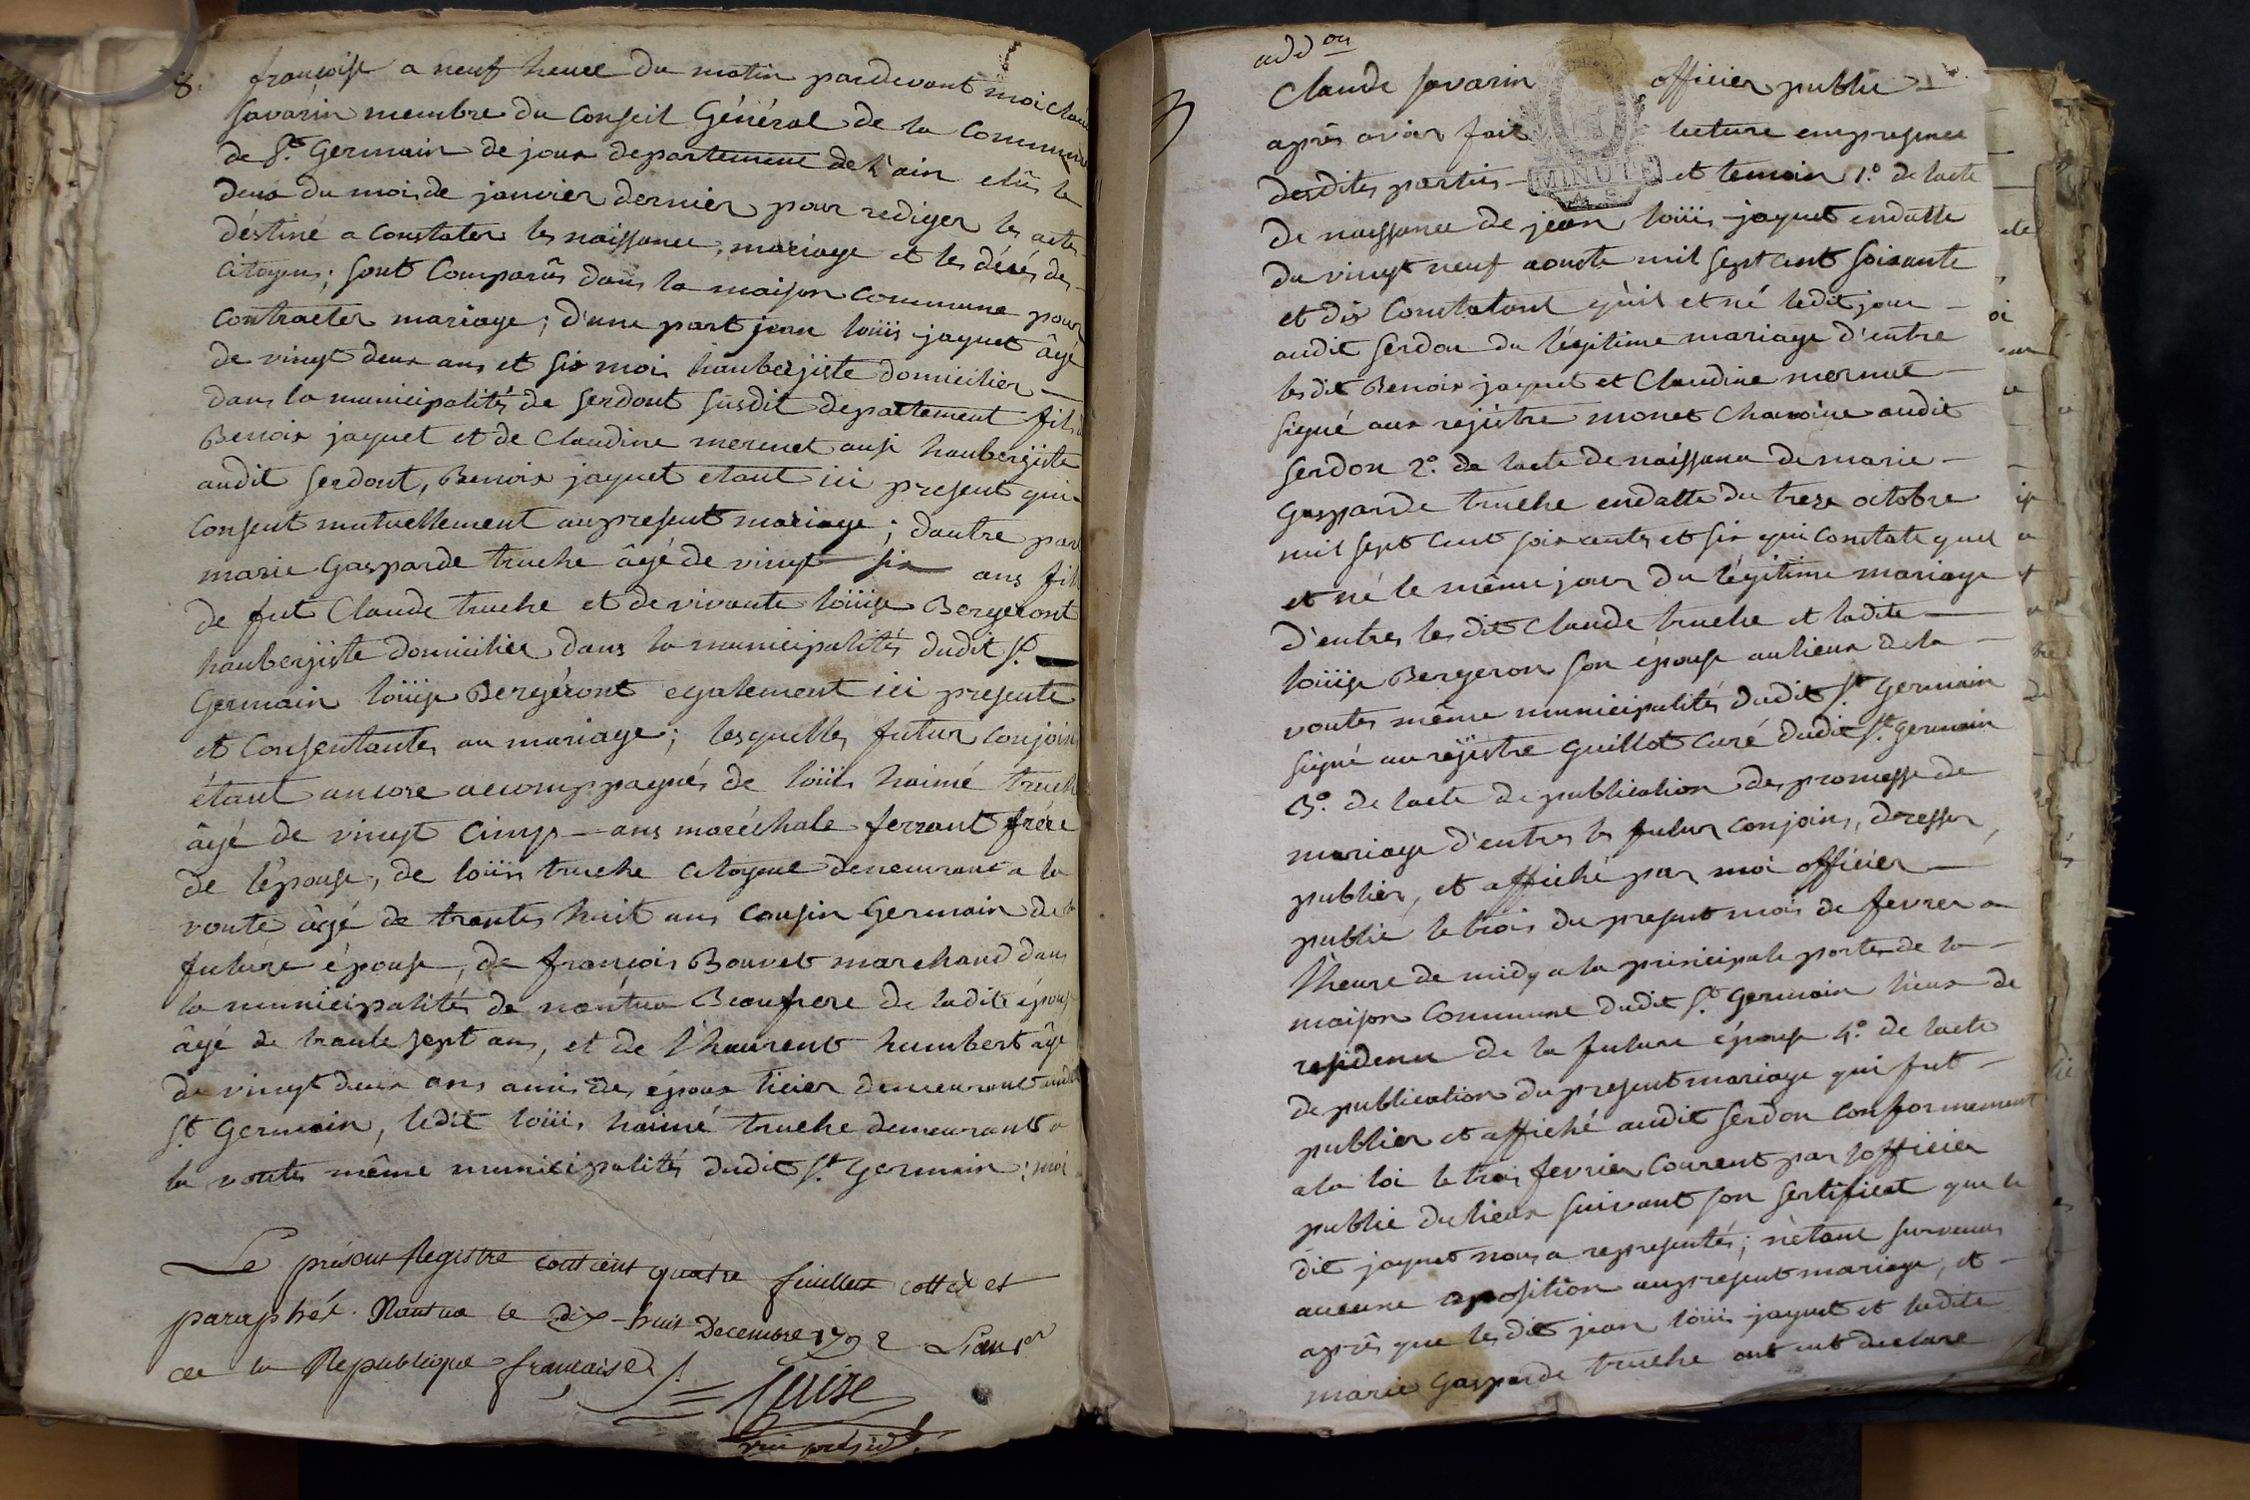 8.
françoise a neuf heure du matin pardevant moi Claude
Savarin membre du Conseil Général de la Commune
de St. Germain de joux departement de l'ain elûs le
deux du mois de janvier dernier pour rediger les actes
déstiné a Constater les naissance, mariage et les décés des
Citoyens; sont Comparûs dans la maison Commune pour
Contracter mariage; d'une part jean loüis jaquet âgé
de vingt deux ans et six mois haubergiste domicilier
dans la municipalités de Serdont susdit departement fils
Benoix jaquet et de Claudine mermet ausi haubergiste
audit Serdont, Benoix jaquet etant ici present qui
Consent mutuellement aupresent mariage; dautre part
marie Gasparde truche âgé de vingt six ans fille
de fut Claude truche et de vivante loüise Bergeront
haubergiste domicilier dans la municipalités dudit St.
Germain loüise Bergéront egalement ici presente
et Consentante au mariage; lesquelles futur Conjoins
étant ancore accomppagnés de loüis haimé truche
âgé de vingt Cinq ans maréchale ferrant frére
de l'épouse, de loüis truche Citoyent demeurant a la
voute âgé de trante huit ans Cousin Germain de la
future épouse, de françois Bouvet marchand dans
la municipalités de nantua Beaufrere de ladite épouse
âgé de trante sept ans, et de l'haurent humbert âge
de vingt deux ans ami des époux ticier demeurant audit
St. Germain, ledit loüis haimé truche demeurant a
la voute même municipalités dudit St. Germain; moi
Le présent Registre contient quatre feuillets cotté et
paraphé. Nantua le dix-huit Decembre 1792 L'an 1er
de la Republique française
vice présidt.
addon
Claude Savarin officier public
après avoir fait lecture empresence
desdites parties et temoin 1.° de lacte
de naissance de jean loüis jaquet endatte
du vingt neuf aouste mil sept cent soixante
et dix Constatant qu'il et né ledit jour
audit Serdon du légitime mariage d'entre
lesdit Benoix jaquet et Claudine mermet
signé aux rejistre monet Chanoine audit
Serdon 2.° de lacte de naissance de marie
Gasparde truche endatte du treze octobre
mil sept cent soixante et six qui Constate quel
et né le même jour du légitime mariage
d'entre lesdit Claude truche et ladite
loüise Bergeron son épouse aulieux de la
voute même municipalités dudit St. Germain
signé au rejistre Guillot Curé dudit St. Germain
3.° de lacte de publication des promesse de
mariage d'entre les futur Conjoins, dresser,
publier, et affiché par moi officier
public le trois du present mois de fevrer a
l'heure de midy a la principale porte de la
maison Commune dudit St. Germain lieux de
residence de la future épouse 4.° de lacte
de publication du present mariage qui fut
publier et affiché audit Serdon Conformement
a la loi le trois fevrier Courent par lofficier
public du lieux suivant son sertificat que le
dit jaquet nous a representés; n'étant survenus
aucune oposition aupresent mariage, et
après que lesdit jean loüis jaquet et ladite
marie Gasparde truche ont eut declaré